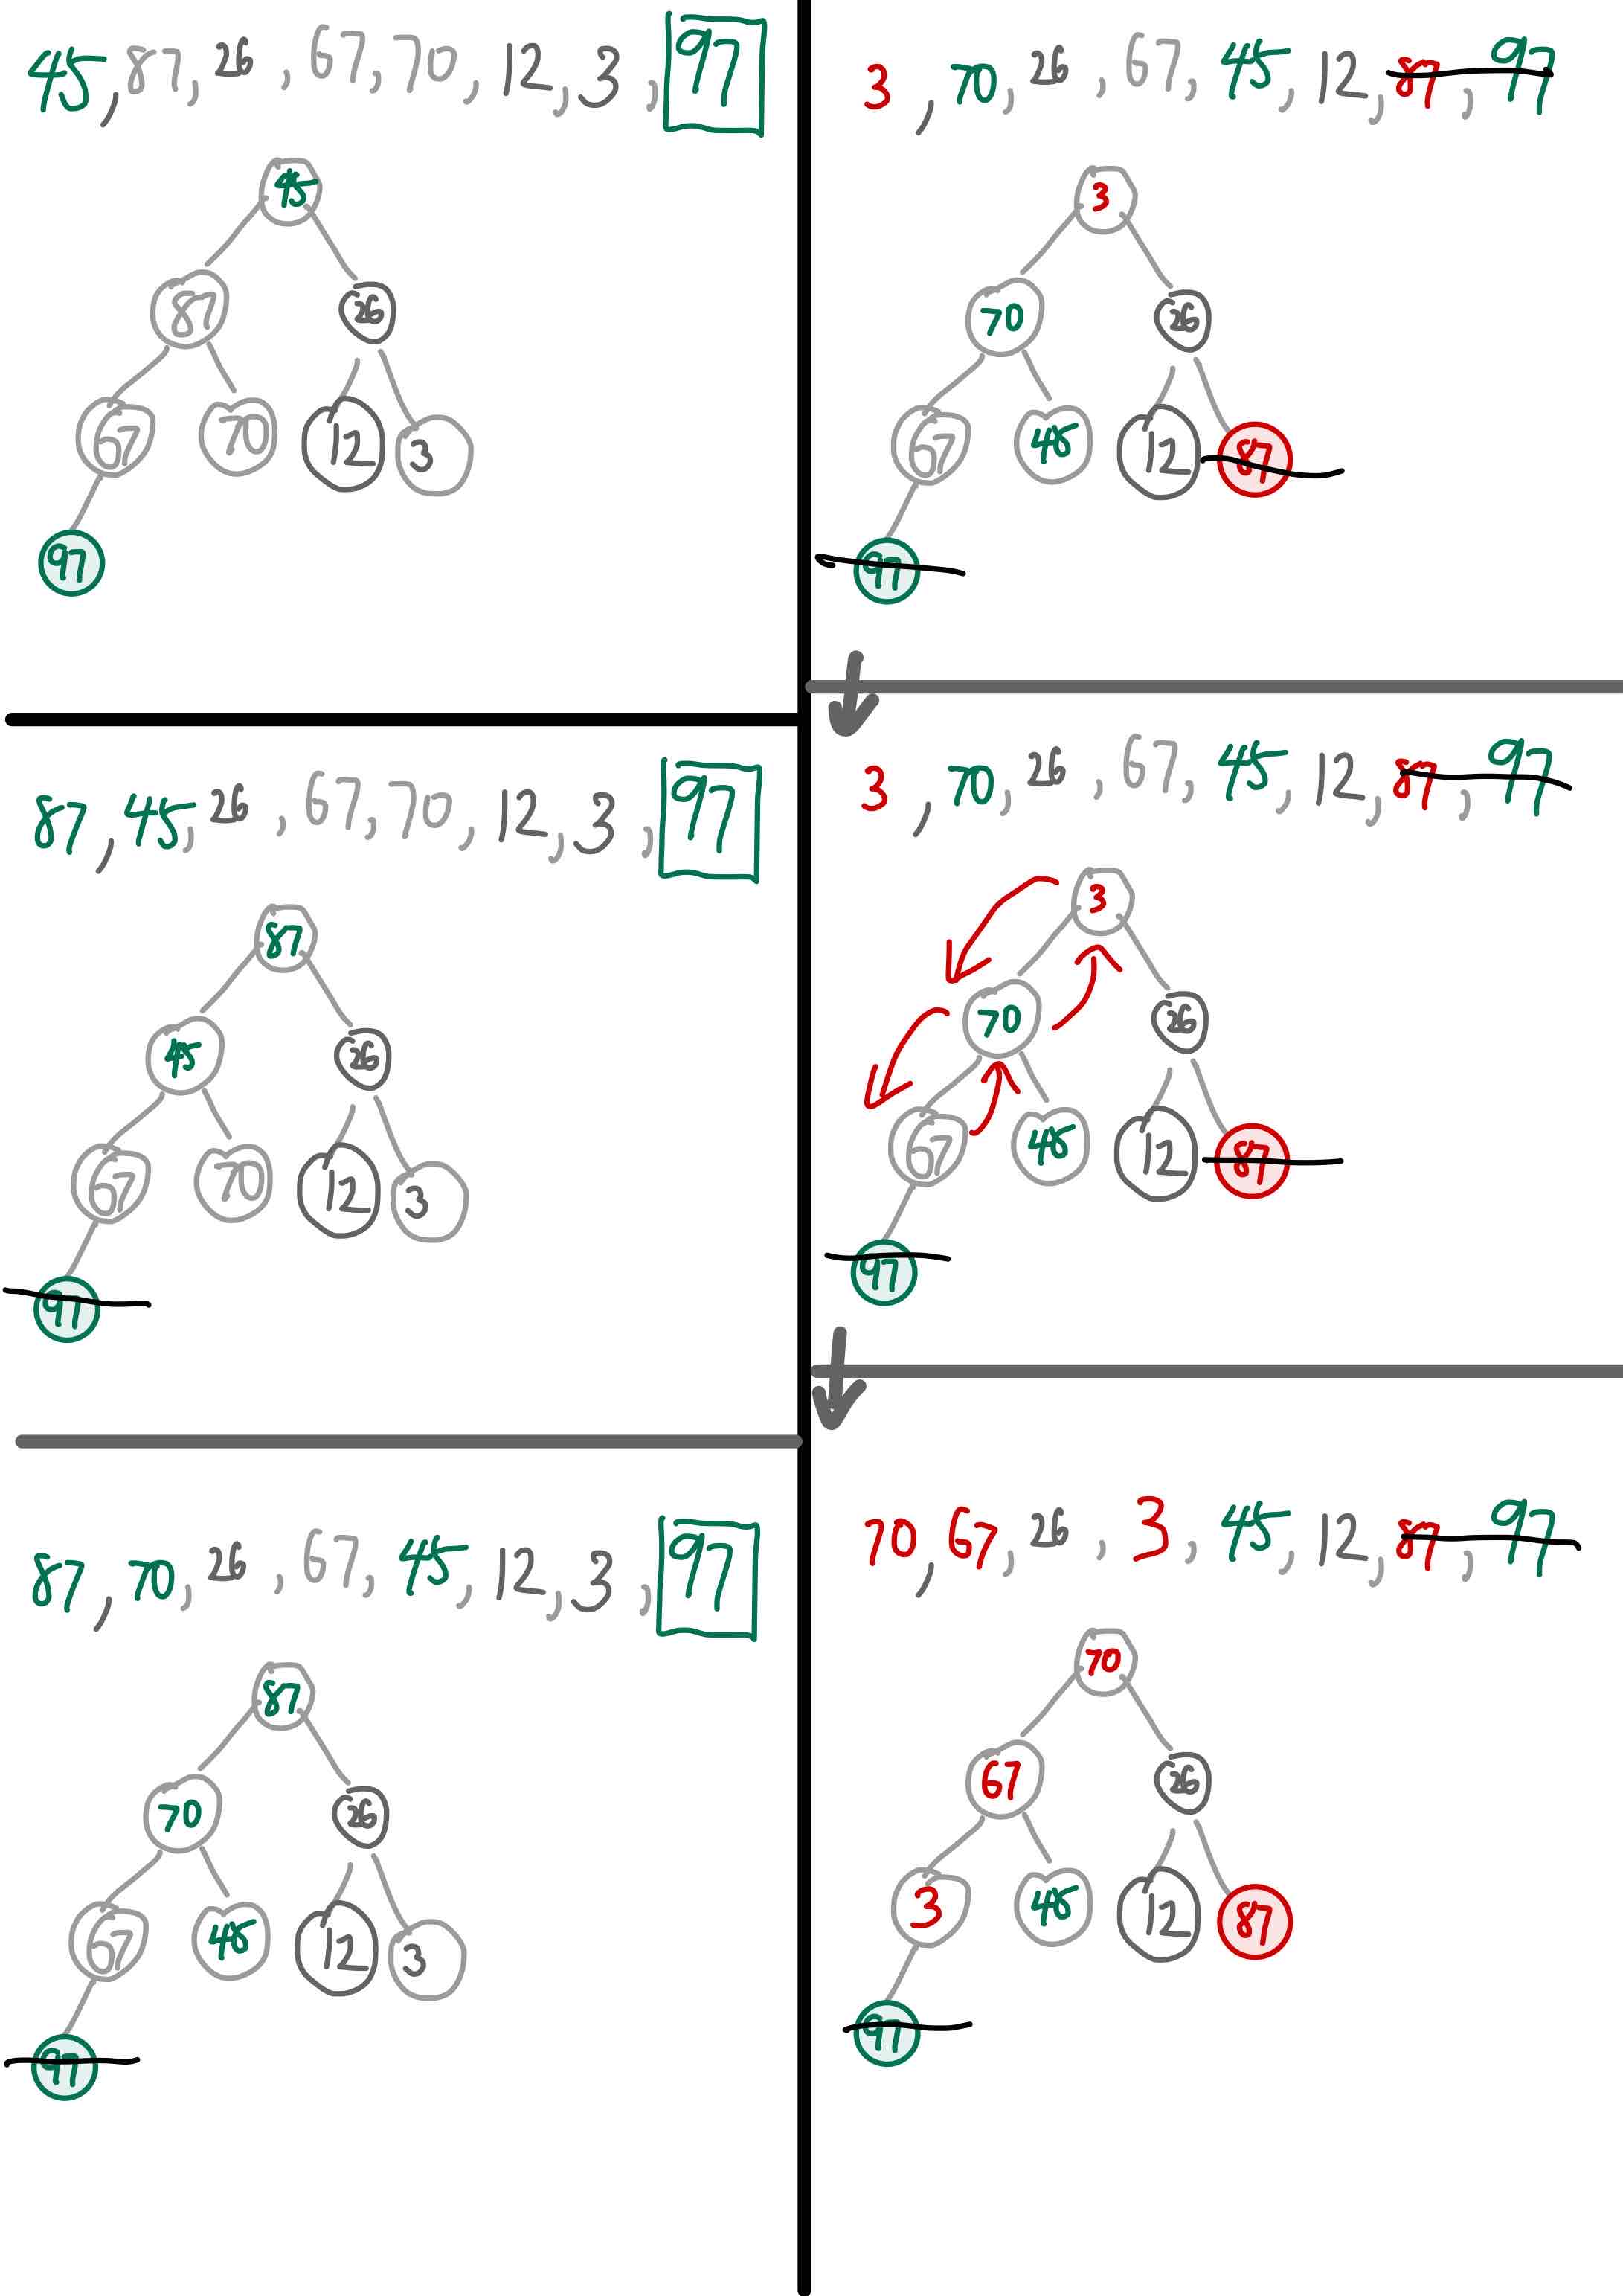 45, 87, 26, 67, 70, 12, 3, 97
45
87 26
67 70 12 3
97
87, 45, 26, 67, 70, 12, 3, 97
87
45 26
67 70 12 3
97
87, 70, 26, 67, 45, 12, 3, 97
87
70 26
67 45 12 3
97
3, 70, 26, 67, 45, 12, 87, 97
3
70 26
67 45 12 87
97
3, 70, 26, 67, 45, 12, 87, 97
3
70 26
67 45 12 87
97
70, 67, 26, 3, 45, 12, 87, 97
70
67 26
3 45 12 87
97